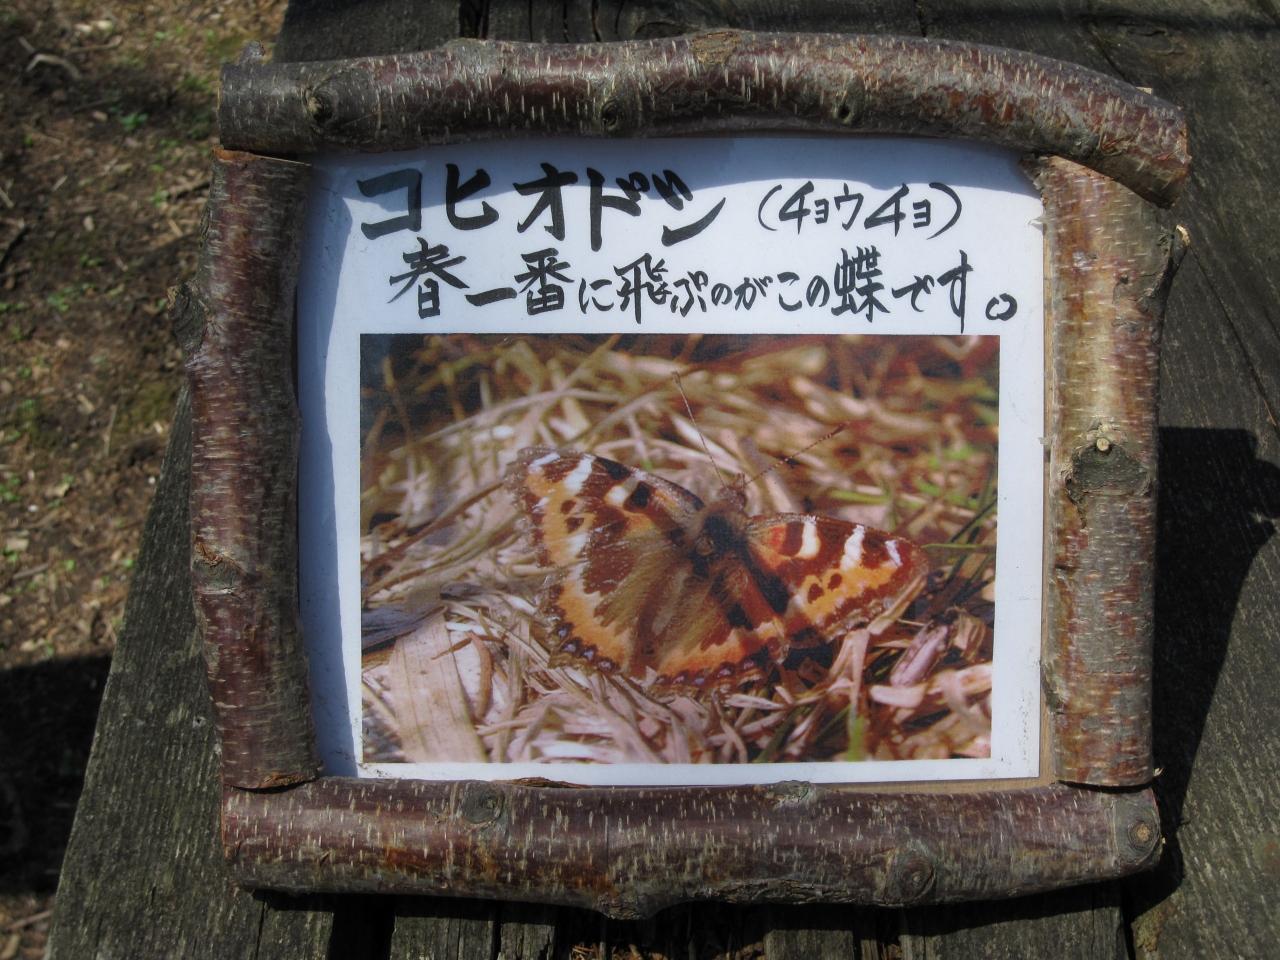 コヒオドシ（チョウチョ）
春一番に飛ぶのがこの蝶です。